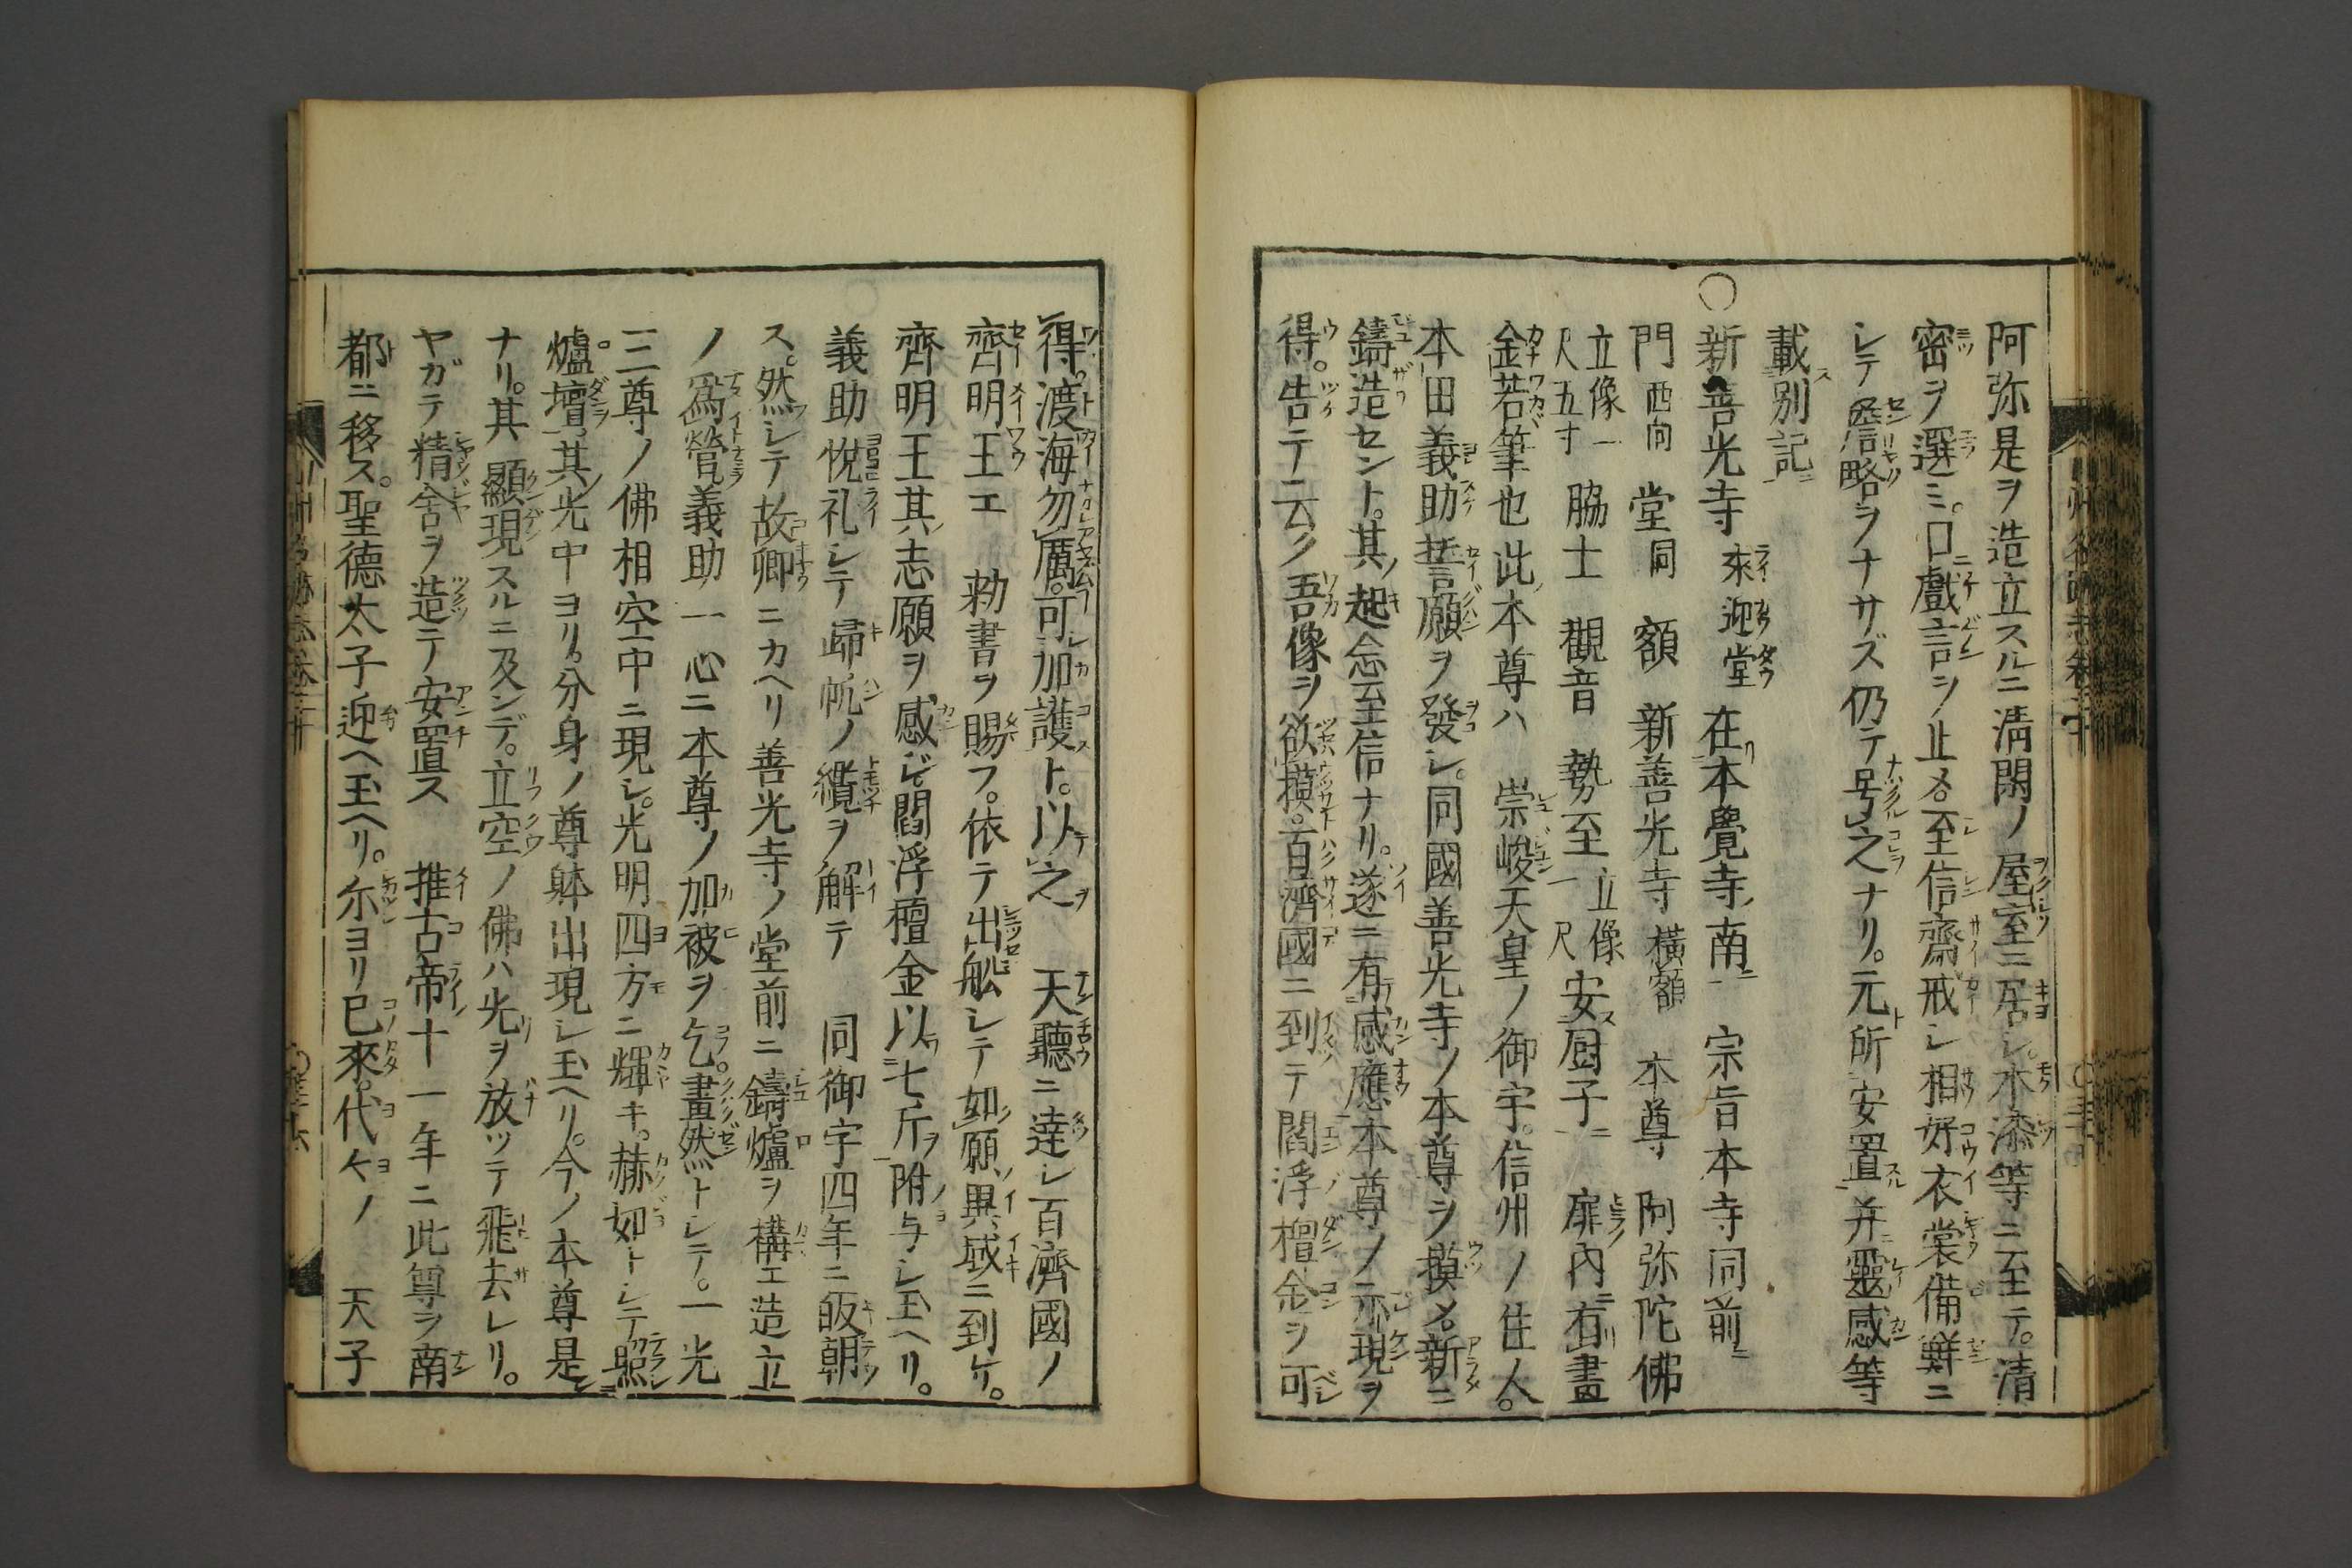 阿弥是ヲ造立スルニ淸閑ノ屋室ニ居シ木漆等ニ至テ。清
密ヲ選ミ。口戲言ヲ止メ至信齋戒シ相好衣裳備鮮ニ
シテ麁略ヲナサズ仍テ号之ナリ。元所安置并靈感等
載別記
○新善光寺 來迎堂 在本覺寺南 宗旨本寺同前
門 西向 堂 同 額 新善光寺 横額 本尊 阿弥陀佛
立像一尺五寸 脇士 觀音 勢至 立像一尺 安厨子 扉內有畫
金若筆也此本尊ハ 崇峻天皇ノ御宇。信州ノ住人。
本田義助誓願ヲ發シ。同國善光寺ノ本尊ヲ摸メ新ニ
鑄造セント。其起念至信ナリ。遂ニ有感應本尊ノ示現ヲ
得。告テ云ク吾像ヲ欲摸。百濟國ニ到テ閻浮檀金ヲ可
得。渡海勿厲。可加護ト。以之 天聽ニ達シ百濟國ノ
齊明王エ 勅書ヲ賜フ。依テ出舩シテ如願異域ニ到ケ。
齊明王其志願ヲ感ジ閻浮檀金以七斤附与シ玉ヘリ。
義助悅礼シテ歸帆ノ纜ヲ解テ 同御宇四年ニ皈朝
ス。然シテ故鄉ニカヘリ善光寺ノ堂前ニ鑄爐ヲ構エ造立
ノ爲營義助一心ニ本尊ノ加被ヲ乞。畫然トシテ。一光
三尊ノ佛相空中ニ現シ。光明四方ニ輝キ。赫如トシテ照
爐壇。其光中ヨリ。分身ノ尊躰出現シ玉ヘリ。今ノ本尊是
ナリ。其顯現スルニ及ンデ。立空ノ佛ハ光ヲ放ツテ飛去レリ。
ヤガテ精舎ヲ造テ安置ス 推古帝十一年ニ此尊ヲ南
都ニ移ス。聖德太子迎ヘ玉ヘリ。尓ヨリ已來。代々ノ 天子